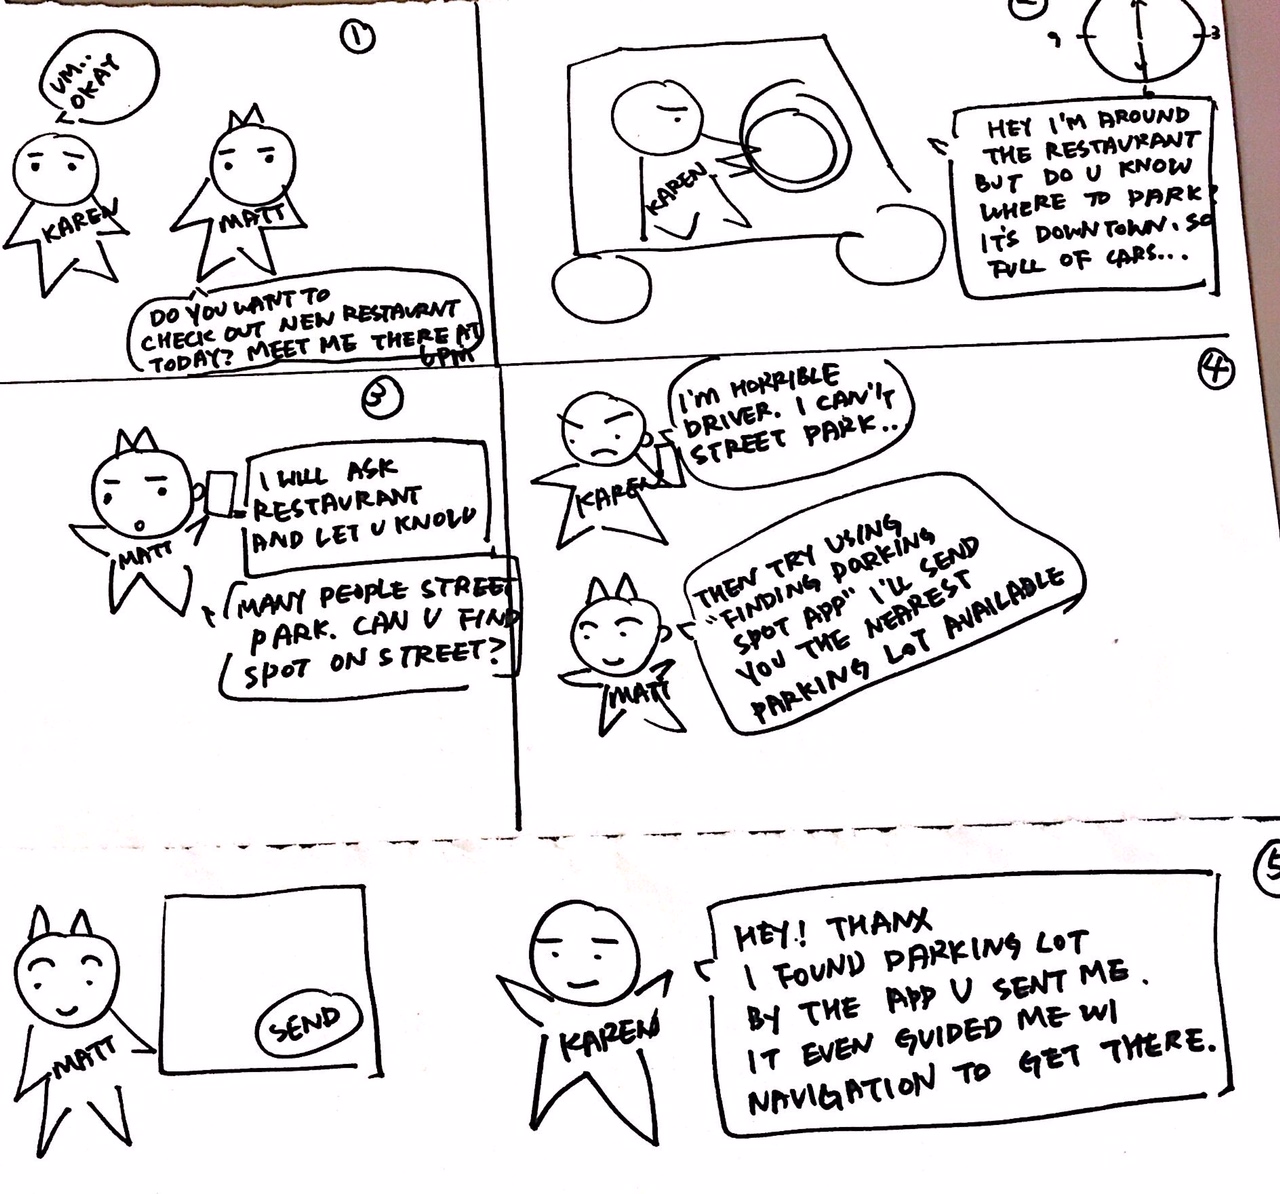 1
UM..
OKAY
KAREN
MATT
DO YOU WANT TO
CHECK OUT NEW RESTAURNT
TODAY? MEET ME THERE AT
6PM
2
9
3
6
KAREN
HEY I'M AROUND
THE RESTAURANT
BUT DO U KNOW
WHERE TO PARK?
IT'S DOWNTOWN. SO
FULL OF CARS...
3
MATT
I WILL ASK
RESTAURANT
AND LET U KNOW
MANY PEOPLE STREET
PARK. CAN U FIND
SPOT ON STREET?
4
I'M HORRIBLE
DRIVER. I CAN'T
STREET PARK..
KAREN
THEN TRY USING
"FINDING PARKING
SPOT APP" I'LL SEND
YOU THE NEAREST
PARKING LOT AVAILABLE
MATT
5
MATT
SEND
KAREN
HEY! THANX
I FOUND PARKING LOT
BY THE APP U SENT ME.
IT EVEN GUIDED ME W/
NAVIGATION TO GET THERE.